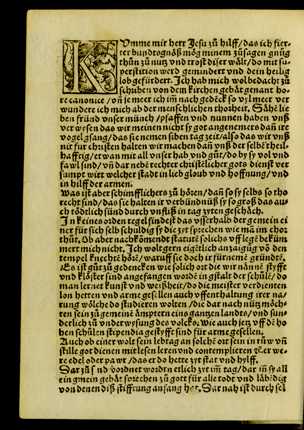 Kumme mir herr Jesu zu hilff / das ich fier
ter bundtgnoß mög meinem zůsagen gnůg
thůn zů nutz und trost diser wält / do mit su
perstition werd gemindert und dein heilig
lob gefürdert. Ich hab mich wolbedacht zů
schůben von dem kirchen gebät genant ho
re canonice / vñ je meer ich im nach gedēck so vyl meer ver
wundere ich mich ab der menschlichen thorheit.
befien fründ unser münch / pfaffen und nunnen haben unß
vor werffen das wir meinen nicht sy got angenemers dan ir
vogel gsang / das sie nennen siben tag zeit / also das wir unß
nit für christen halten wir machen dañ unß der selbē theil
hafftig / etwan mit all unser hab und gůt / do by sy vol und
fawl sind / vñ dar nebē rechter christēlicher gots dienst ver
sumpt wirt welcher stadt in lieb gloub und hoffnung / und
in hilff der armen.
Was ist aber schimfflichers zů hōren / dañ so sy selbs so tho
recht sind / das sie halten ir verbündnüß sy so groß das au
ch tödtlich sünd durch unfliß in tag zyten geschäch.
In keines orden regel findest das usserhalb der gemein ei
ner für sich selb schuldig sy die zyt sprechen wie mā im chor
thůt. Ob aber nachkomendt statutē solichs uff legē bekūm
mert mich nicht. Ich wolgern eigētlich anzaigūg vō den
tempel knechtē hörē / waruff sie doch ir fürnemē gründtē.
Es ist gůt zů gedēckē wie solich ort die wir nännē styfft
und klöster sind angefangen wordē in gstalt der schůlē / do
man lernet kunst und weißheit / do die meister verdienten
lon hetten und arme gesellen auch uffenthaltung irer na
rung wölche do studierē wolten / die dar nach nütz möch
ten sein zů gemeine āmptern eins gantzen lands / und sun
derlich zů underwysung des volcks. wie auch ietz uff dē ho
hen schůlen stipendia gestyfft sind für arme gesellen.
Auch ob einer wolt sein lebtag an solichē ort sein in růw vñ
stille got dienen mit lesen leren und contemplierē
re edel oder pawr / das er do hette zyt stat und hylff.
Dar zů sind geordnet worden etlich zyt im tag / dar in sy all
ein gmein gebät sprechen zů gott für alle todt und läbdig
von denen diß stifftung anfang hat. Dar nah ist durch sel